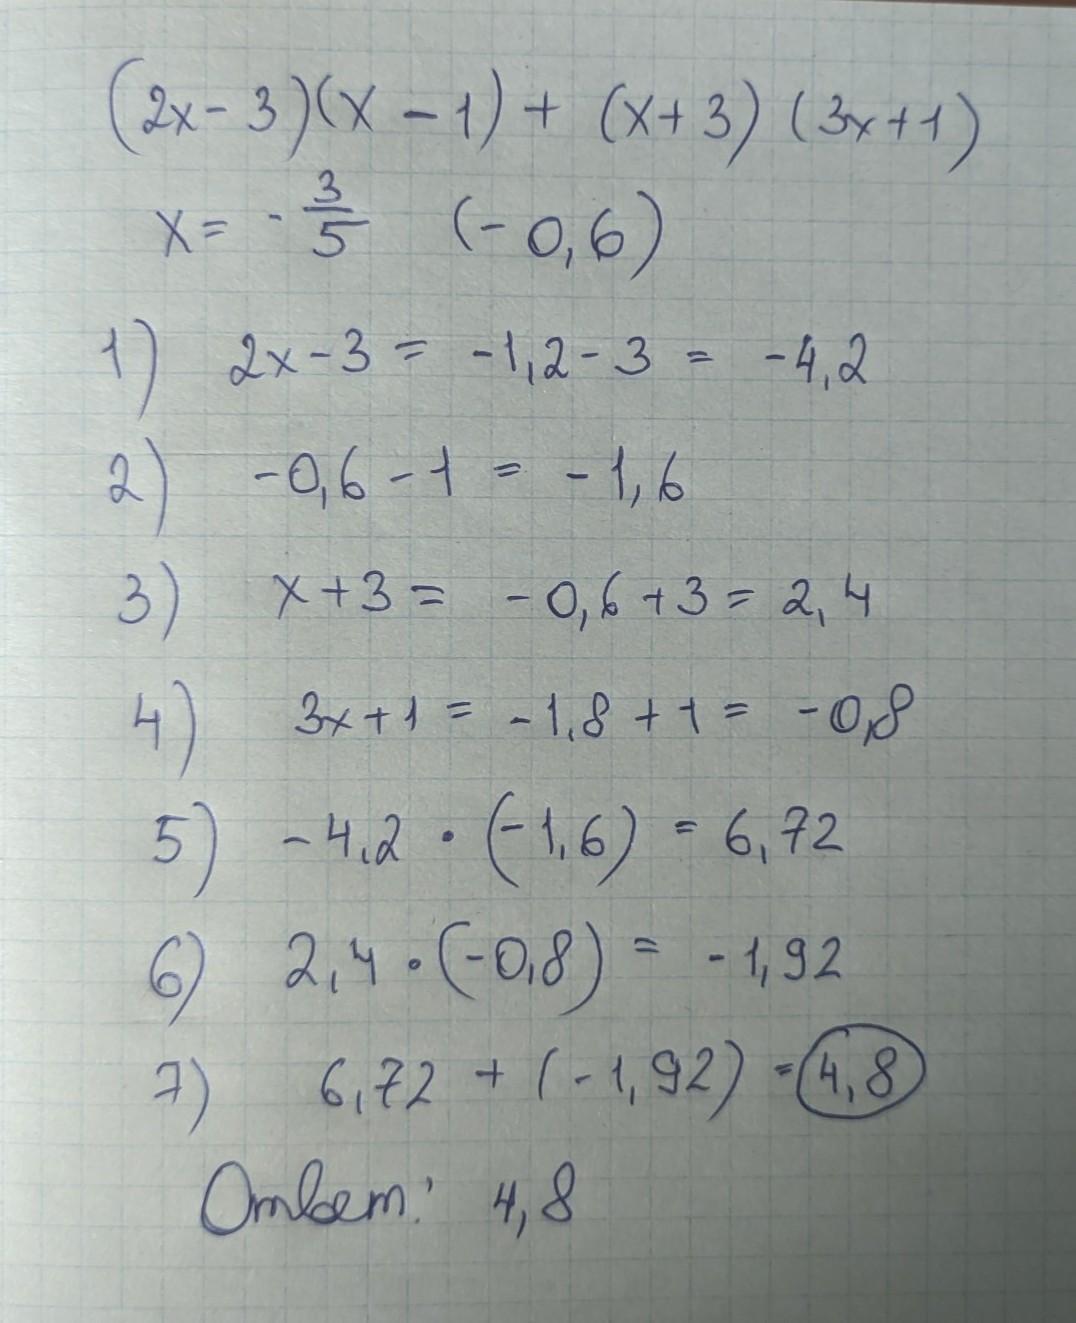 (2x - 3)(x - 1) + (x + 3) (3x + 1)
x = - 3/5 (- 0,6)
1) 2x - 3 = -1,2 - 3 = -4,2
2) -0,6 - 1 = -1,6
3) x + 3 = -0,6 + 3 = 2,4
4) 3x + 1 = -1,8 + 1 = -0,8
5) -4,2 · (-1,6) = 6,72
6) 2,4 · (-0,8) = -1,92
7) 6,72 + (-1,92) = 4,8
Ответ: 4,8